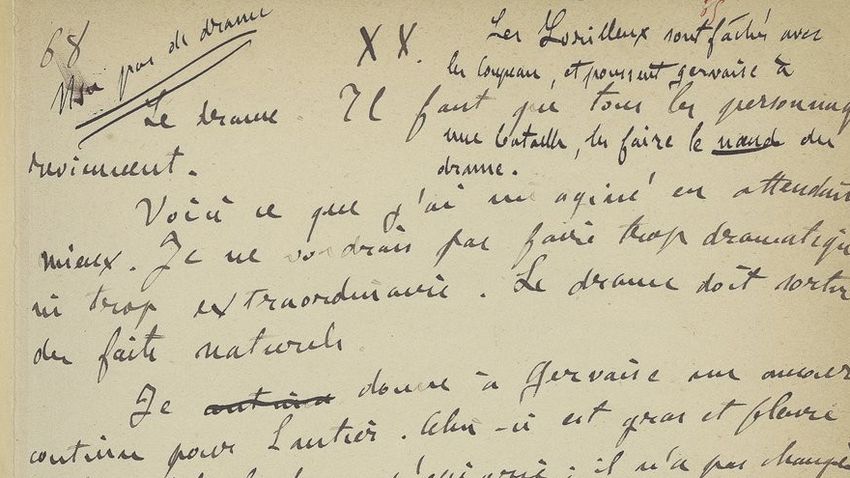 68
Non pas de drame
XX.
Les Lorilleux sont fâchés avec
les Coupeau, et poussent Gervaise à
Le drame. Il faut que tous les personnag
une bataille, les faire le nœud du
reviennent.
drame.
Voici ce que j'ai imaginé en attendant
mieux. Je ne voudrais pas faire trop dramatique
ni trop extraordinaire. Le drame doit sortir
des faits naturels
Je donne à Gervaise un amour
continu pour Lantier. Celui-ci est gras et fleuri
; il n'a pas changé